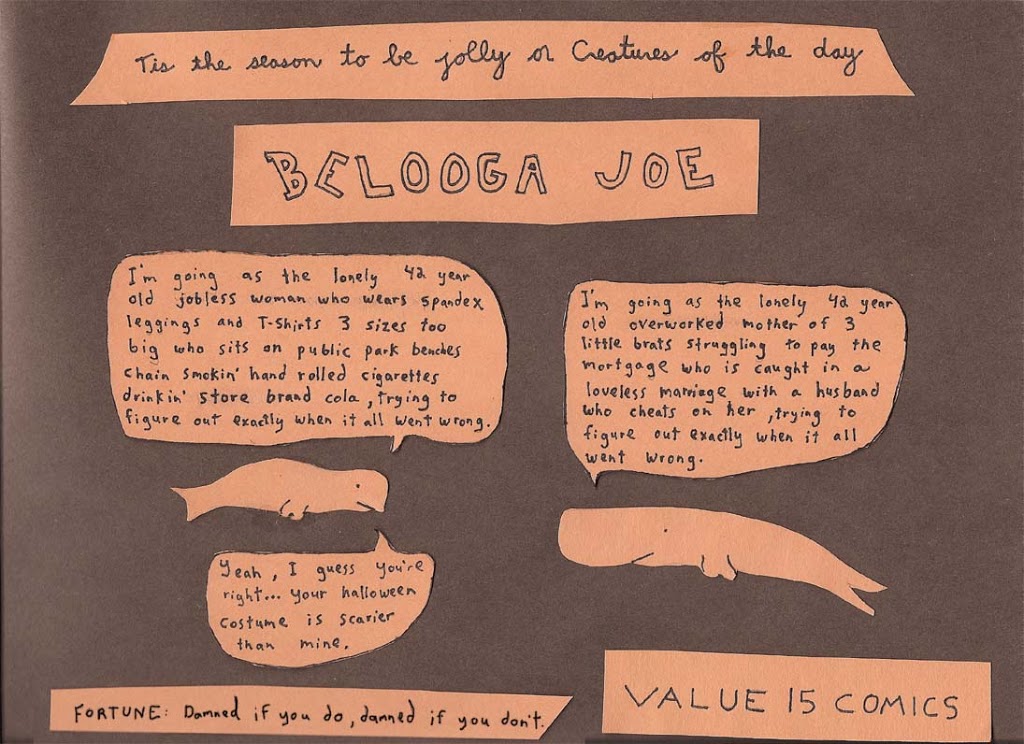 Tis the season to be jolly or Creatures of the day
BELOOGA JOE
I'm going as the lonely 42 year
old jobless woman who wears spandex
leggings and T-Shirts 3 sizes too
big who sits on public park benches
chain smokin' hand rolled cigarettes
drinkin' store brand cola, trying to
figure out exactly when it all went wrong.
I'm going as the lonely 42 year
old overworked mother of 3
little brats struggling to pay the
mortgage who is caught in a
loveless marriage with a husband
who cheats on her, trying to
figure out exactly when it all
went wrong.
Yeah, I guess you're
right... your halloween
costume is scarier
than mine.
FORTUNE: Damned if you do, damned if you don't.
VALUE 15 COMICS